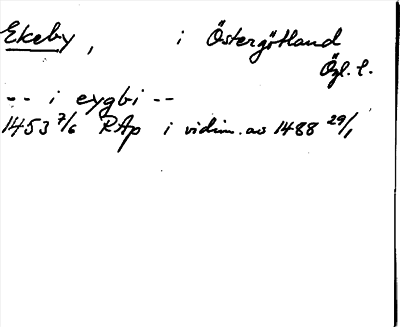 Ekeby, i Östergötland
Ögl. l.
-- i eygbi --
1453 7/6 RAp i vidim. av 1488 29/1